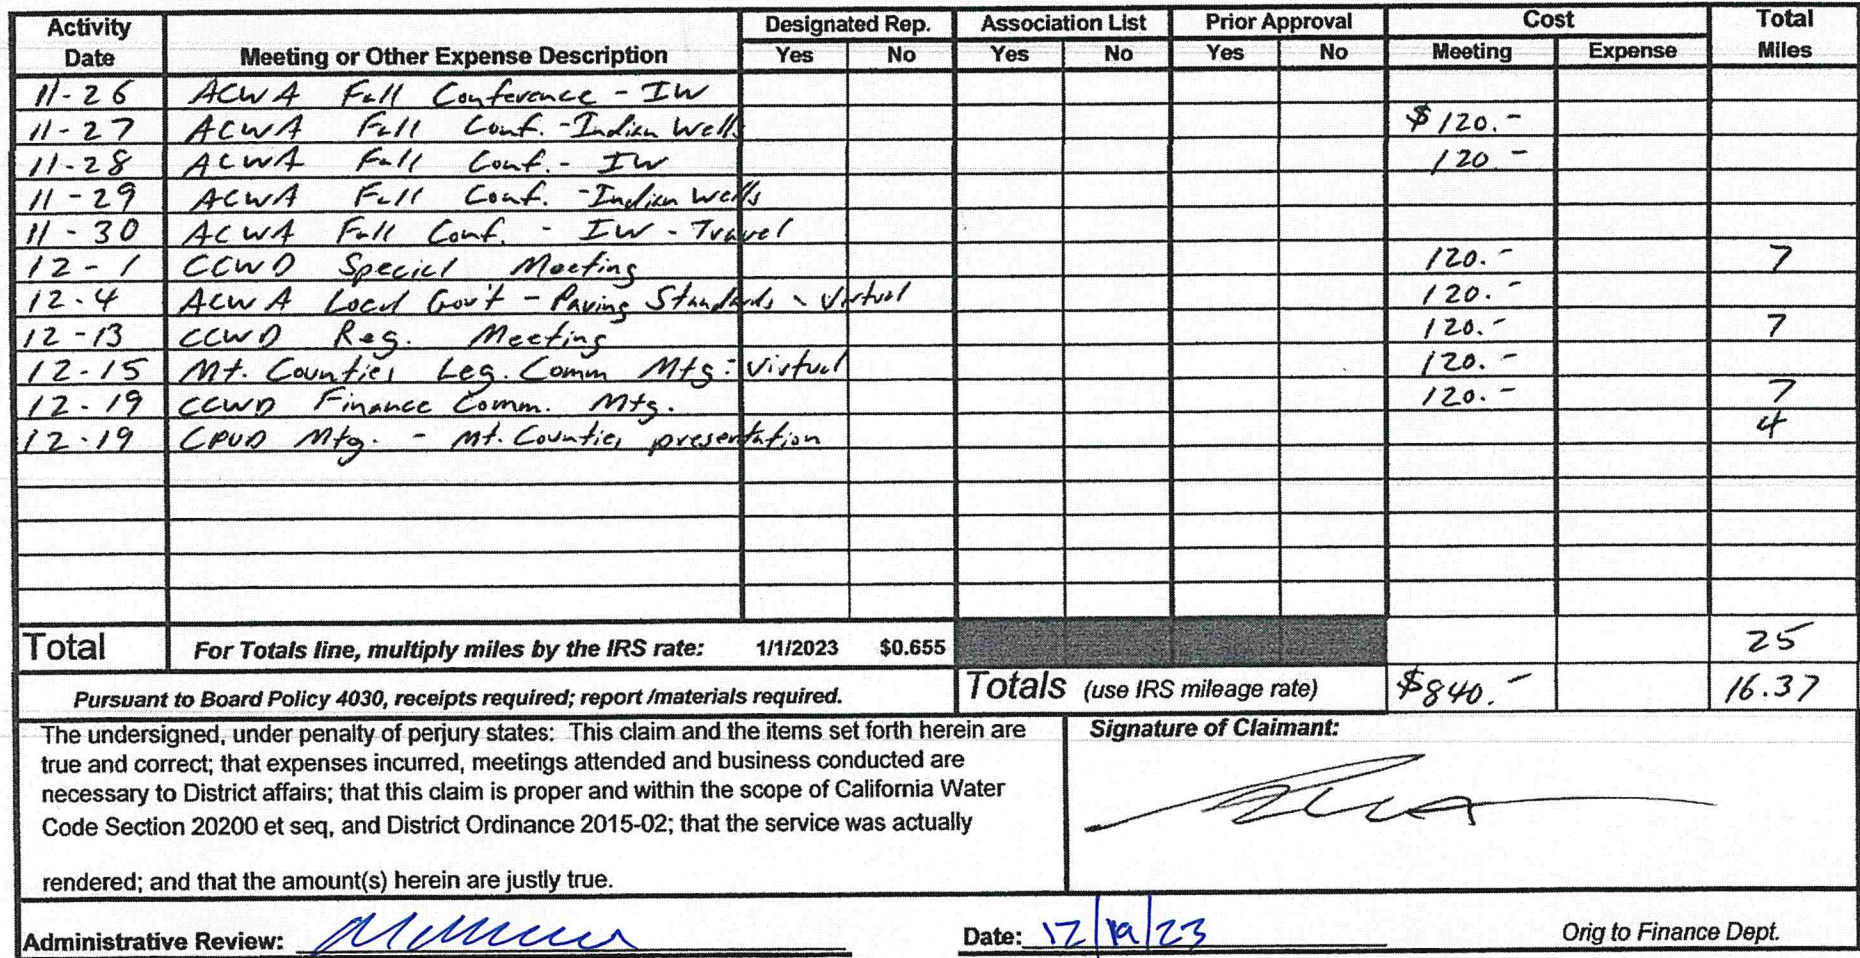 Activity Date Meeting or Other Expense Description Designated Rep. Association List Prior Approval Cost Total Miles
Yes No Yes No Yes No Meeting Expense
11-26 ACWA Fall Conference - IW
11-27 ACWA Fall Conf. - Indian Wells $120.-
11-28 ACWA Fall Conf. - IW 120-
11-29 ACWA Fall Conf. - Indian Wells
11-30 ACWA Fall Conf. - IW - Travel
12-1 CCWD Special Meeting 120.- 7
12-4 ACWA Local Gov't - Paving Standards - Virtual 120.-
12-13 CCWD Reg. Meeting 120.- 7
12-15 Mt. Counties Leg. Comm Mtg - Virtual 120.-
12-19 CCWD Finance Comm. Mtg. 120.- 7
12-19 CPUD Mtg. - Mt. Counties presentation 4
Total For Totals line, multiply miles by the IRS rate: 1/1/2023 $0.655 25
Pursuant to Board Policy 4030, receipts required; report /materials required. Totals (use IRS mileage rate) $840.- 16.37
The undersigned, under penalty of perjury states: This claim and the items set forth herein are
true and correct; that expenses incurred, meetings attended and business conducted are
necessary to District affairs; that this claim is proper and within the scope of California Water
Code Section 20200 et seq, and District Ordinance 2015-02; that the service was actually
rendered; and that the amount(s) herein are justly true.
Signature of Claimant:
Administrative Review: Date: 12/19/23 Orig to Finance Dept.